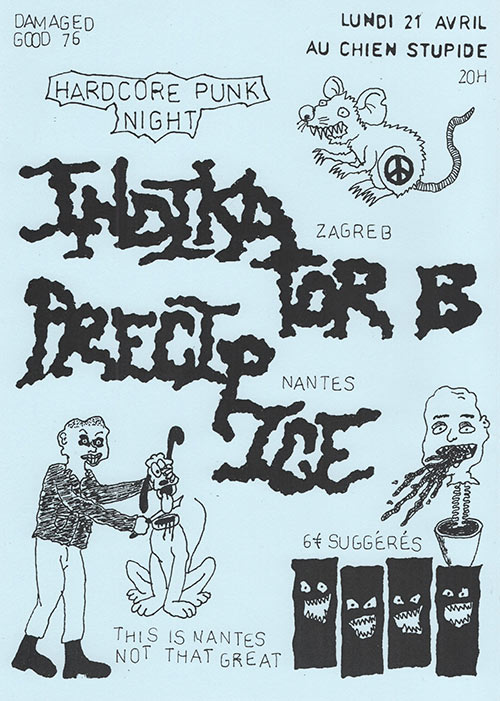 DAMAGED
GOOD 76
LUNDI 21 AVRIL
AU CHIEN STUPIDE
20H
HARDCORE PUNK
NIGHT
INDIKA
TOR B
ZAGREB
PRECIP
ICE
NANTES
6€ SUGGÉRÉS
THIS IS NANTES
NOT THAT GREAT